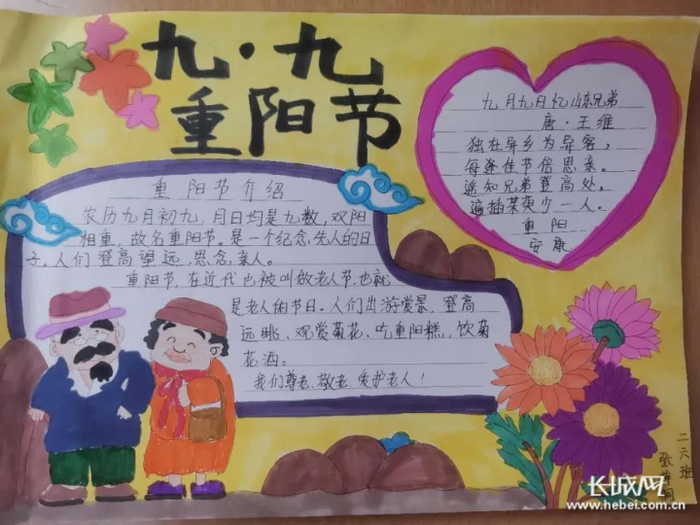 九·九
重阳节
重阳节介绍
农历九月初九,月日均是九数,双阳
相重,故名重阳节。是一个纪念先人的日
子。人们登高望远,思念亲人。
重阳节,在近代也被叫做老人节,也就
是老人的节日。人们出游赏景、登高
远眺、观赏菊花、吃重阳糕、饮菊
花酒。
我们尊老、敬老、爱护老人!
九月九日忆山东兄弟
唐·王维
独在异乡为异客,
每逢佳节倍思亲。
遥知兄弟登高处,
遍插茱萸少一人。
重阳
安康
二六班
张
长城网
www.hebei.com.cn